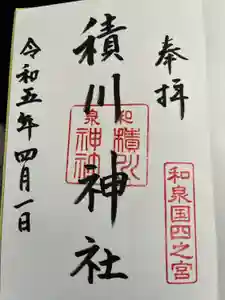 奉拝
和泉国四之宮
積川神社
和泉
積川
神社
令和五年四月一日